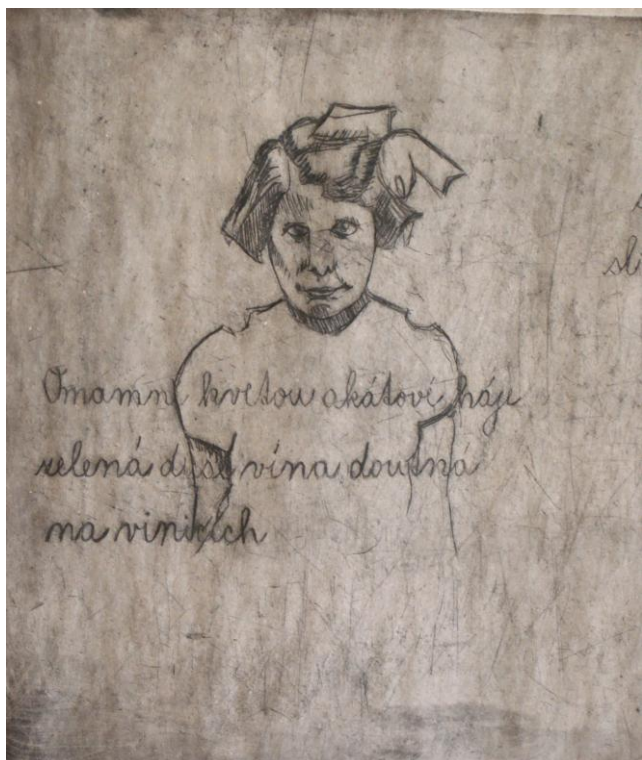 Omamně kvetou akátové háje
zelená duše vína doutná
na vinicích